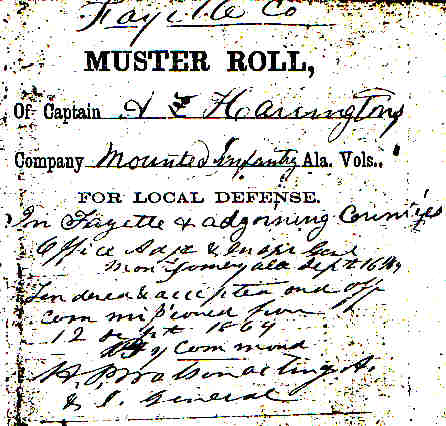 Fayette Co
MUSTER ROLL,
Of Captain A E Harringtons
Company Mounted Infantry Ala. Vols.,
FOR LOCAL DEFENSE.
In Fayette & adgoining Counties
Office Adjt & Inspr Genl
Montgomey ala Sept 16
Tendered & accepted and off
com missioned from
12 Sept 1864
By Command
H. P. Watson acting A.
& I. General